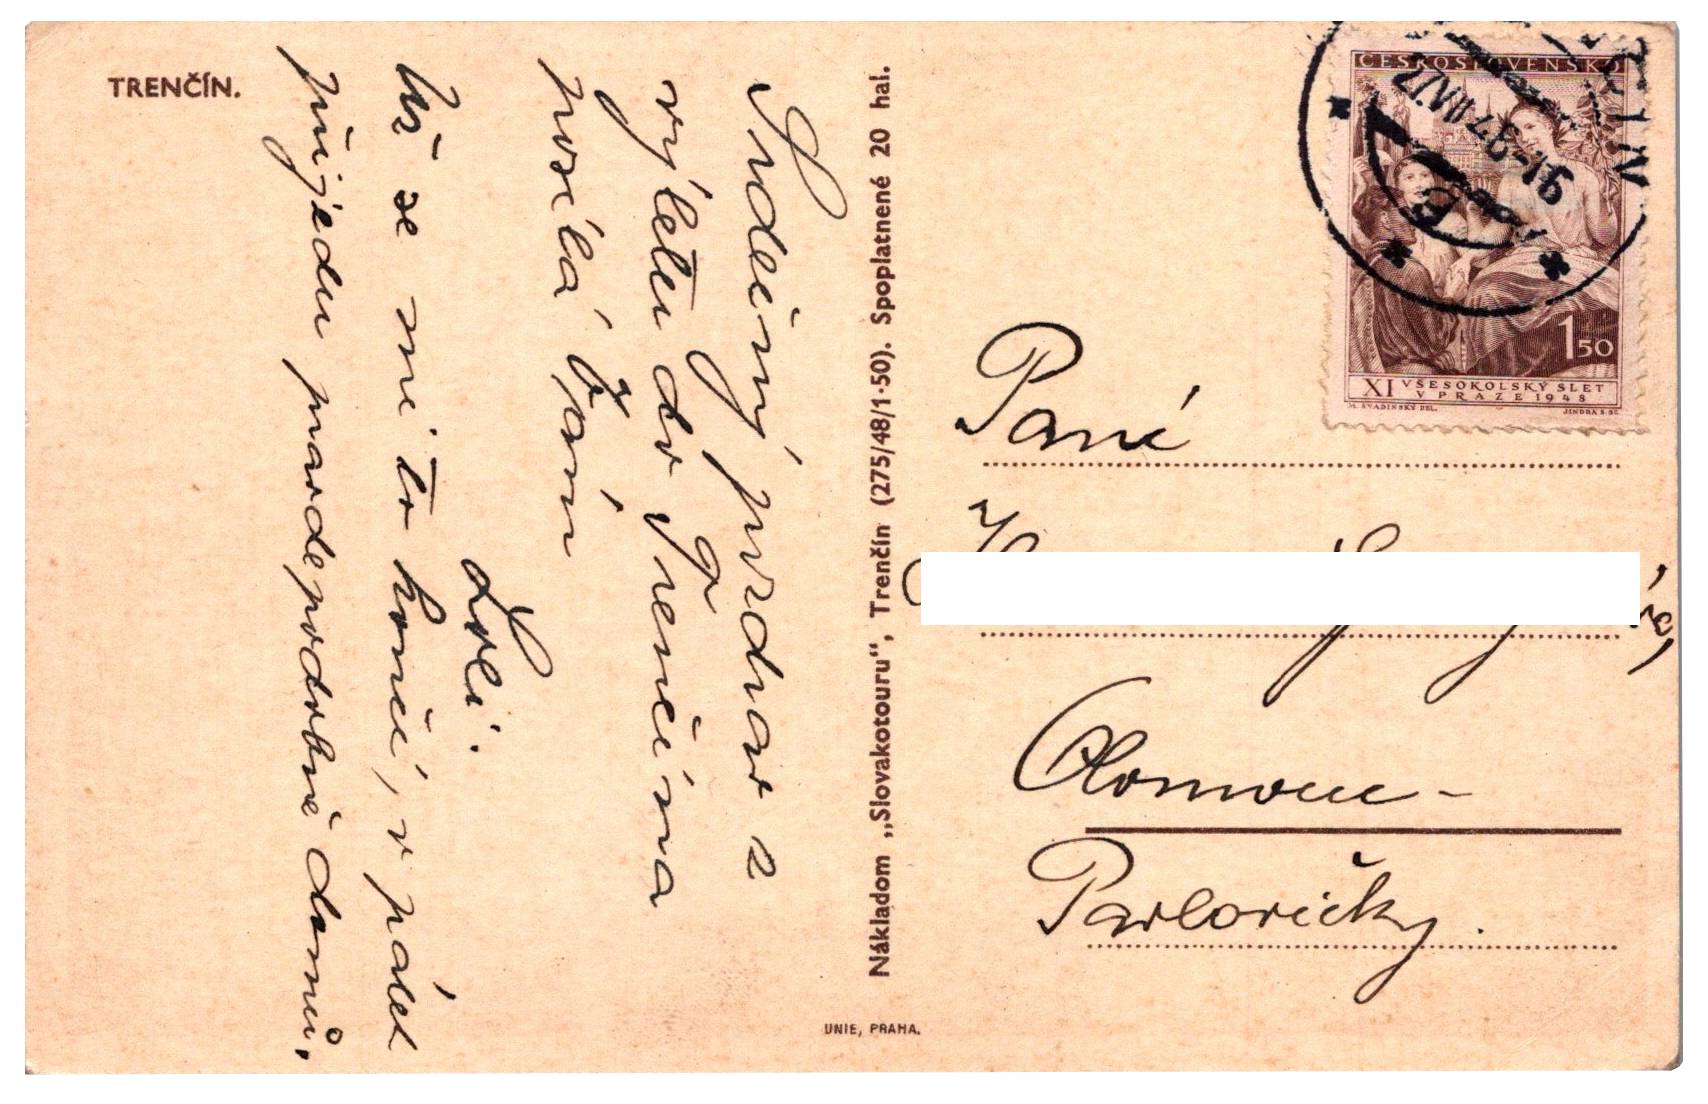 TRENČÍN.
Srdečný pozdrav z
výletu do Trenčína
posílá Vám
Loli.
Už se mi to končí, v pátek
přijedu pravděpodobně domů.
Nákladom „Slovakotouru“, Trenčín (275/48/1·50). Spoplatnené 20 hal.
UNIE, PRAHA.
ČESKOSLOVENSKO
1 50
XI VŠESOKOLSKÝ SLET
V PRAZE 1948
M. ŠVABINSKÝ DEL. JINDRA S. SC.
Paní
Olomouc -
Pavlovičky.